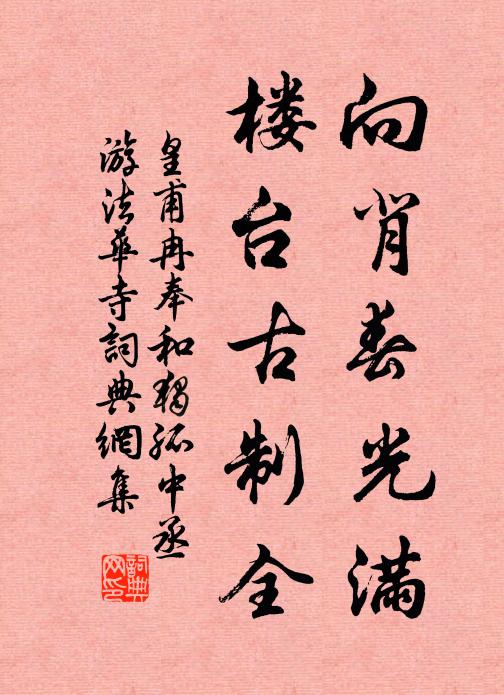 向背春光满
楼台古制全
皇甫冉奉和独孤中丞
游法華寺詞典網集
詞典
网印